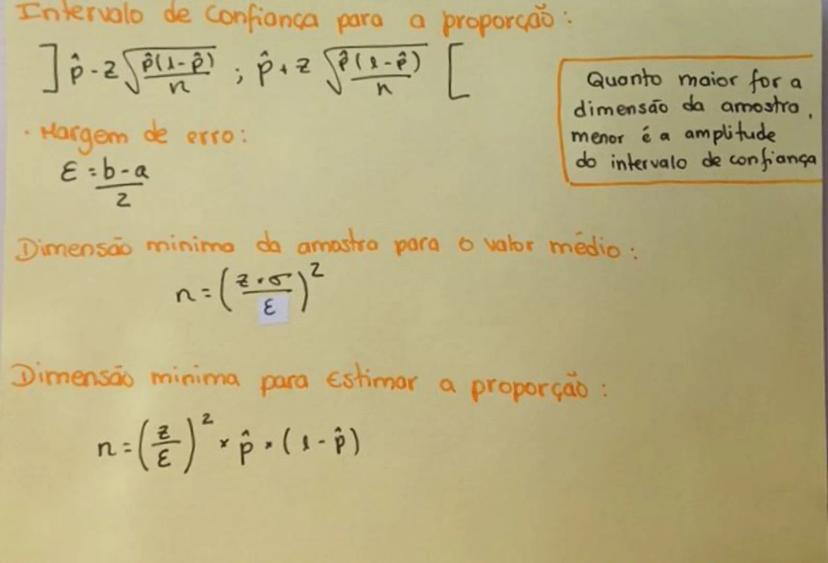 Intervalo de Confiança para a proporção:
] p̂ - z √(p̂(1-p̂)/n) ; p̂ + z √(p̂(1-p̂)/n) [
Quanto maior for a
dimensão da amostra,
menor é a amplitude
do intervalo de confiança
· Margem de erro:
ε = (b-a)/2
Dimensão minima da amostra para o valor médio:
n = (z·σ/ε)²
Dimensão minima para Estimar a proporção:
n = (z/ε)² × p̂ × (1-p̂)